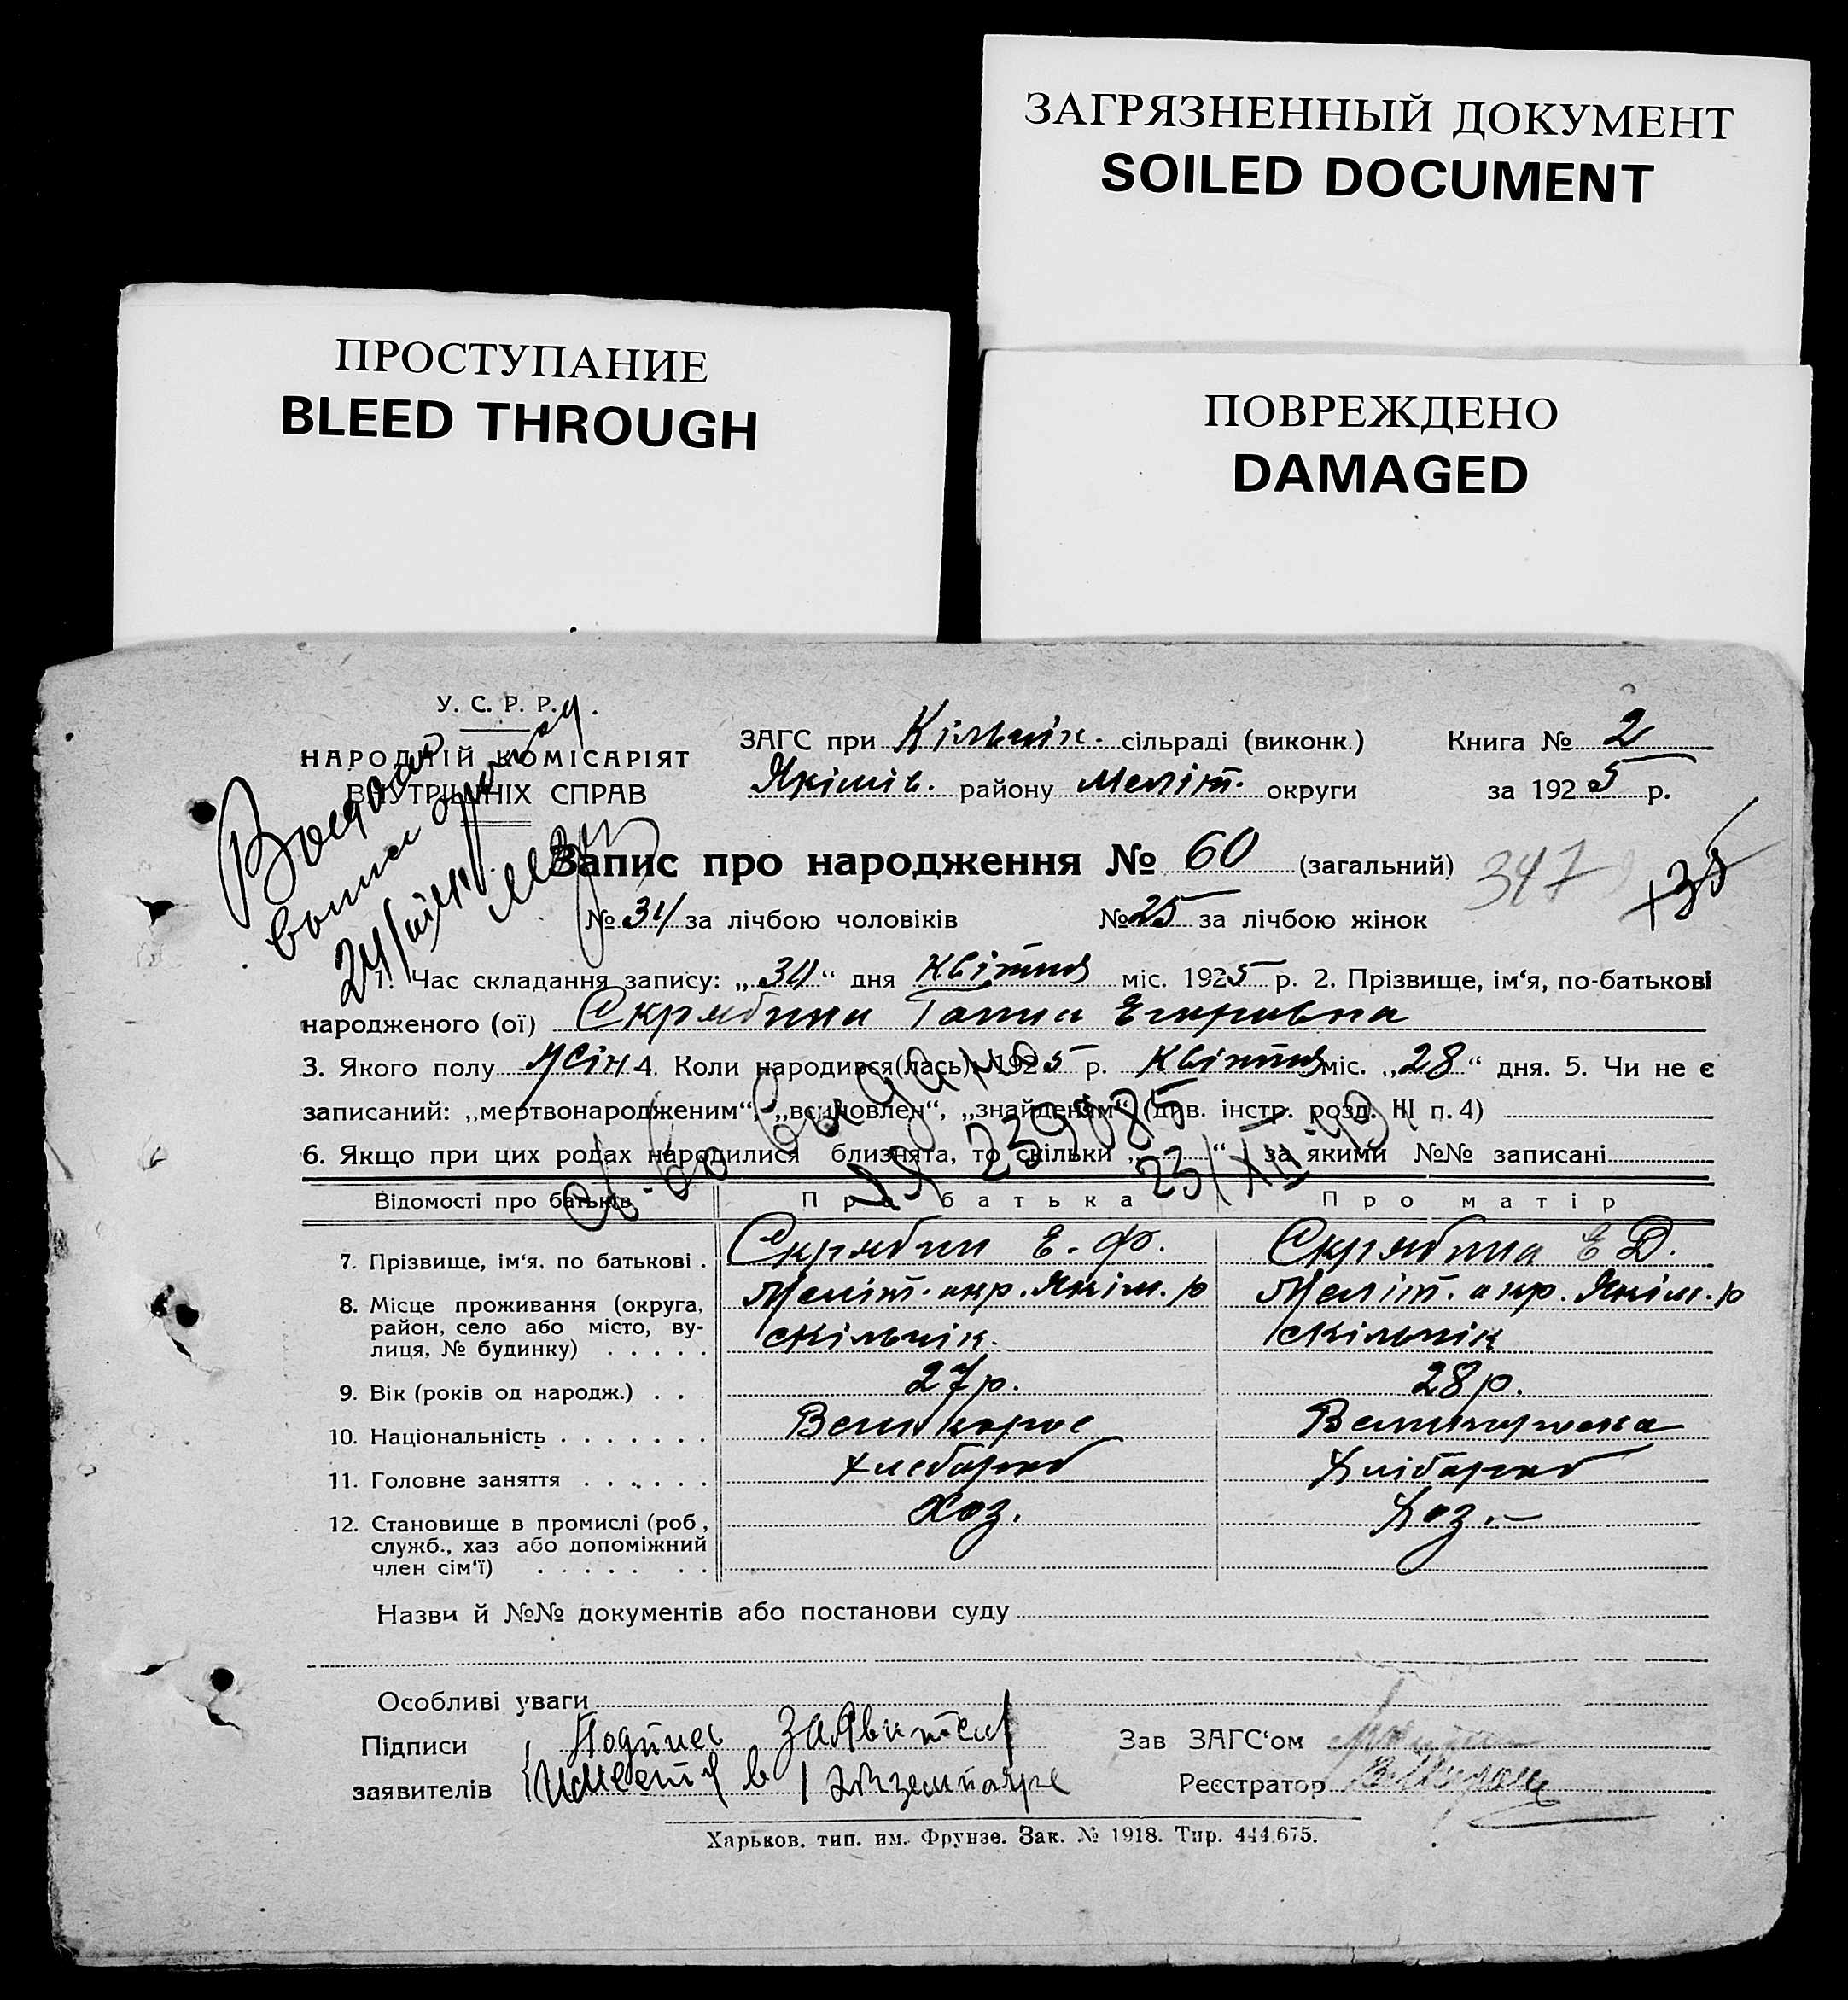 ЗАГРЯЗНЕННЫЙ ДОКУМЕНТ
SOILED DOCUMENT
ПРОСТУПАНИЕ
BLEED THROUGH
ПОВРЕЖДЕНО
DAMAGED
У. С. Р. Р.
НАРОДНІЙ КОМІСАРІЯТ
ВНУТРІШНІХ СПРАВ
ЗАГС при Кільчік. сільраді (виконк.) Книга № 2
Якімів. району Меліт. округи за 1925 р.
Запис про народження № 60 (загальний)
347
+35
№ за лічбою чоловіків № 25 за лічбою жінок
1. Час складання запису: „ “ дня Квітня міс. 1925 р. 2. Прізвище, ім‘я, по-батькові
народженого (ої) Скрябина Ганна Егоровна
3. Якого полу Жін. 4. Коли народився(лась): 1925 р. Квітня міс. „28“ дня. 5. Чи не є
записаний: „мертвонародженим“, „всиновлен“, „знайденим“ (див. інстр. розд. III п. 4)
6. Якщо при цих родах народилися близнята, то скільки „ “ за якими №№ записані
св. во выдано
239085
23/XII 49
Відомості про батьків Про батька Про матір
7. Прізвище, ім‘я, по батькові . Скрябин Е. Ф. Скрябина Е Д.
8. Місце проживання (округа, район, село або місто, вулиця, № будинку) . . . . . Меліт. окр. Якім. р Меліт. окр. Якім. р
с Кільчік. с Кільчік
9. Вік (років од народж.) . . 27 р. 28 р.
10. Національність . . . . . . . Великорос Великороска
11. Головне заняття . . . . . . Хлебороб Хлібороб
12. Становище в промислі (роб, служб., хаз або допоміжний член сім‘ї) . . . . . . . Хоз. Хоз.
Назви й №№ документів або постанови суду
Особливі уваги
Підписи Подпись заявителя Зав ЗАГС‘ом
заявителів имеется в 1 экземпляре Реєстратор
Харьков. тип. им. Фрунзе. Зак. № 1918. Тир. 444.675.